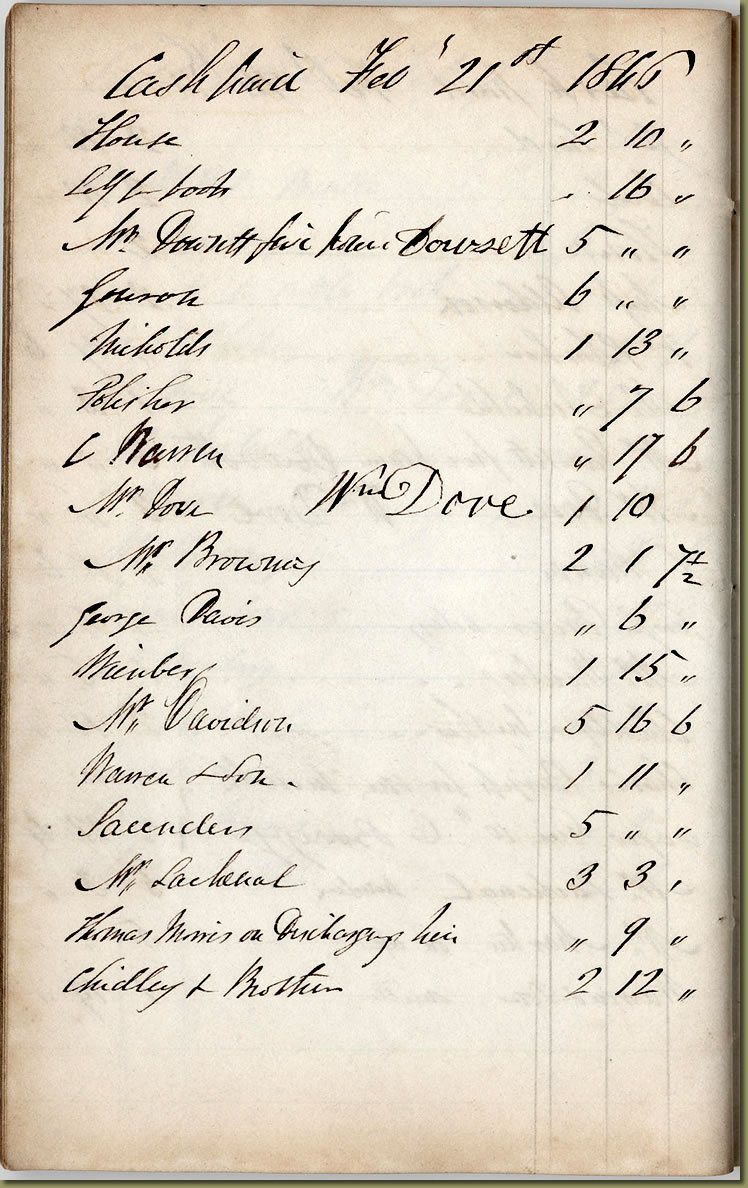 Cash paid Feb' 21st 1866
House 2 10 "
Self for books . 16 "
Mr. Dowsett five pair Dowsett 5 " "
Gouson 6 " "
Nicholds 1 13 "
Polisher " 7 6
C Warren " 17 6
Mr. Dove Wm Dove 1 10
Mr. Browning 2 1 7 1/2
George Davis " 6 "
Weinberg 1 15 "
Mr. Davidson 5 16 6
Warren & Son. 1 11 "
Saunders 5 " "
Mr. Lachenal 3 3 ,
Thomas Morris on Discharging him " 9 "
Chidley & Brother 2 12 "